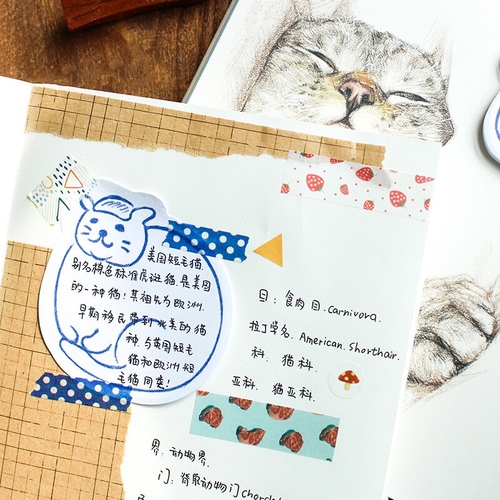 美国短毛猫.
别名棉色标准虎斑猫.是美国
的一种猫!其祖先为欧洲.
早期移民带到北美的猫
种.与英国短毛
猫和欧洲短
毛猫同类!
目:食肉目.Carnivora.
拉丁学名.American.Shorthair.
科:猫科.
亚科.猫亚科.
界.动物界.
门:脊索动物门chordat